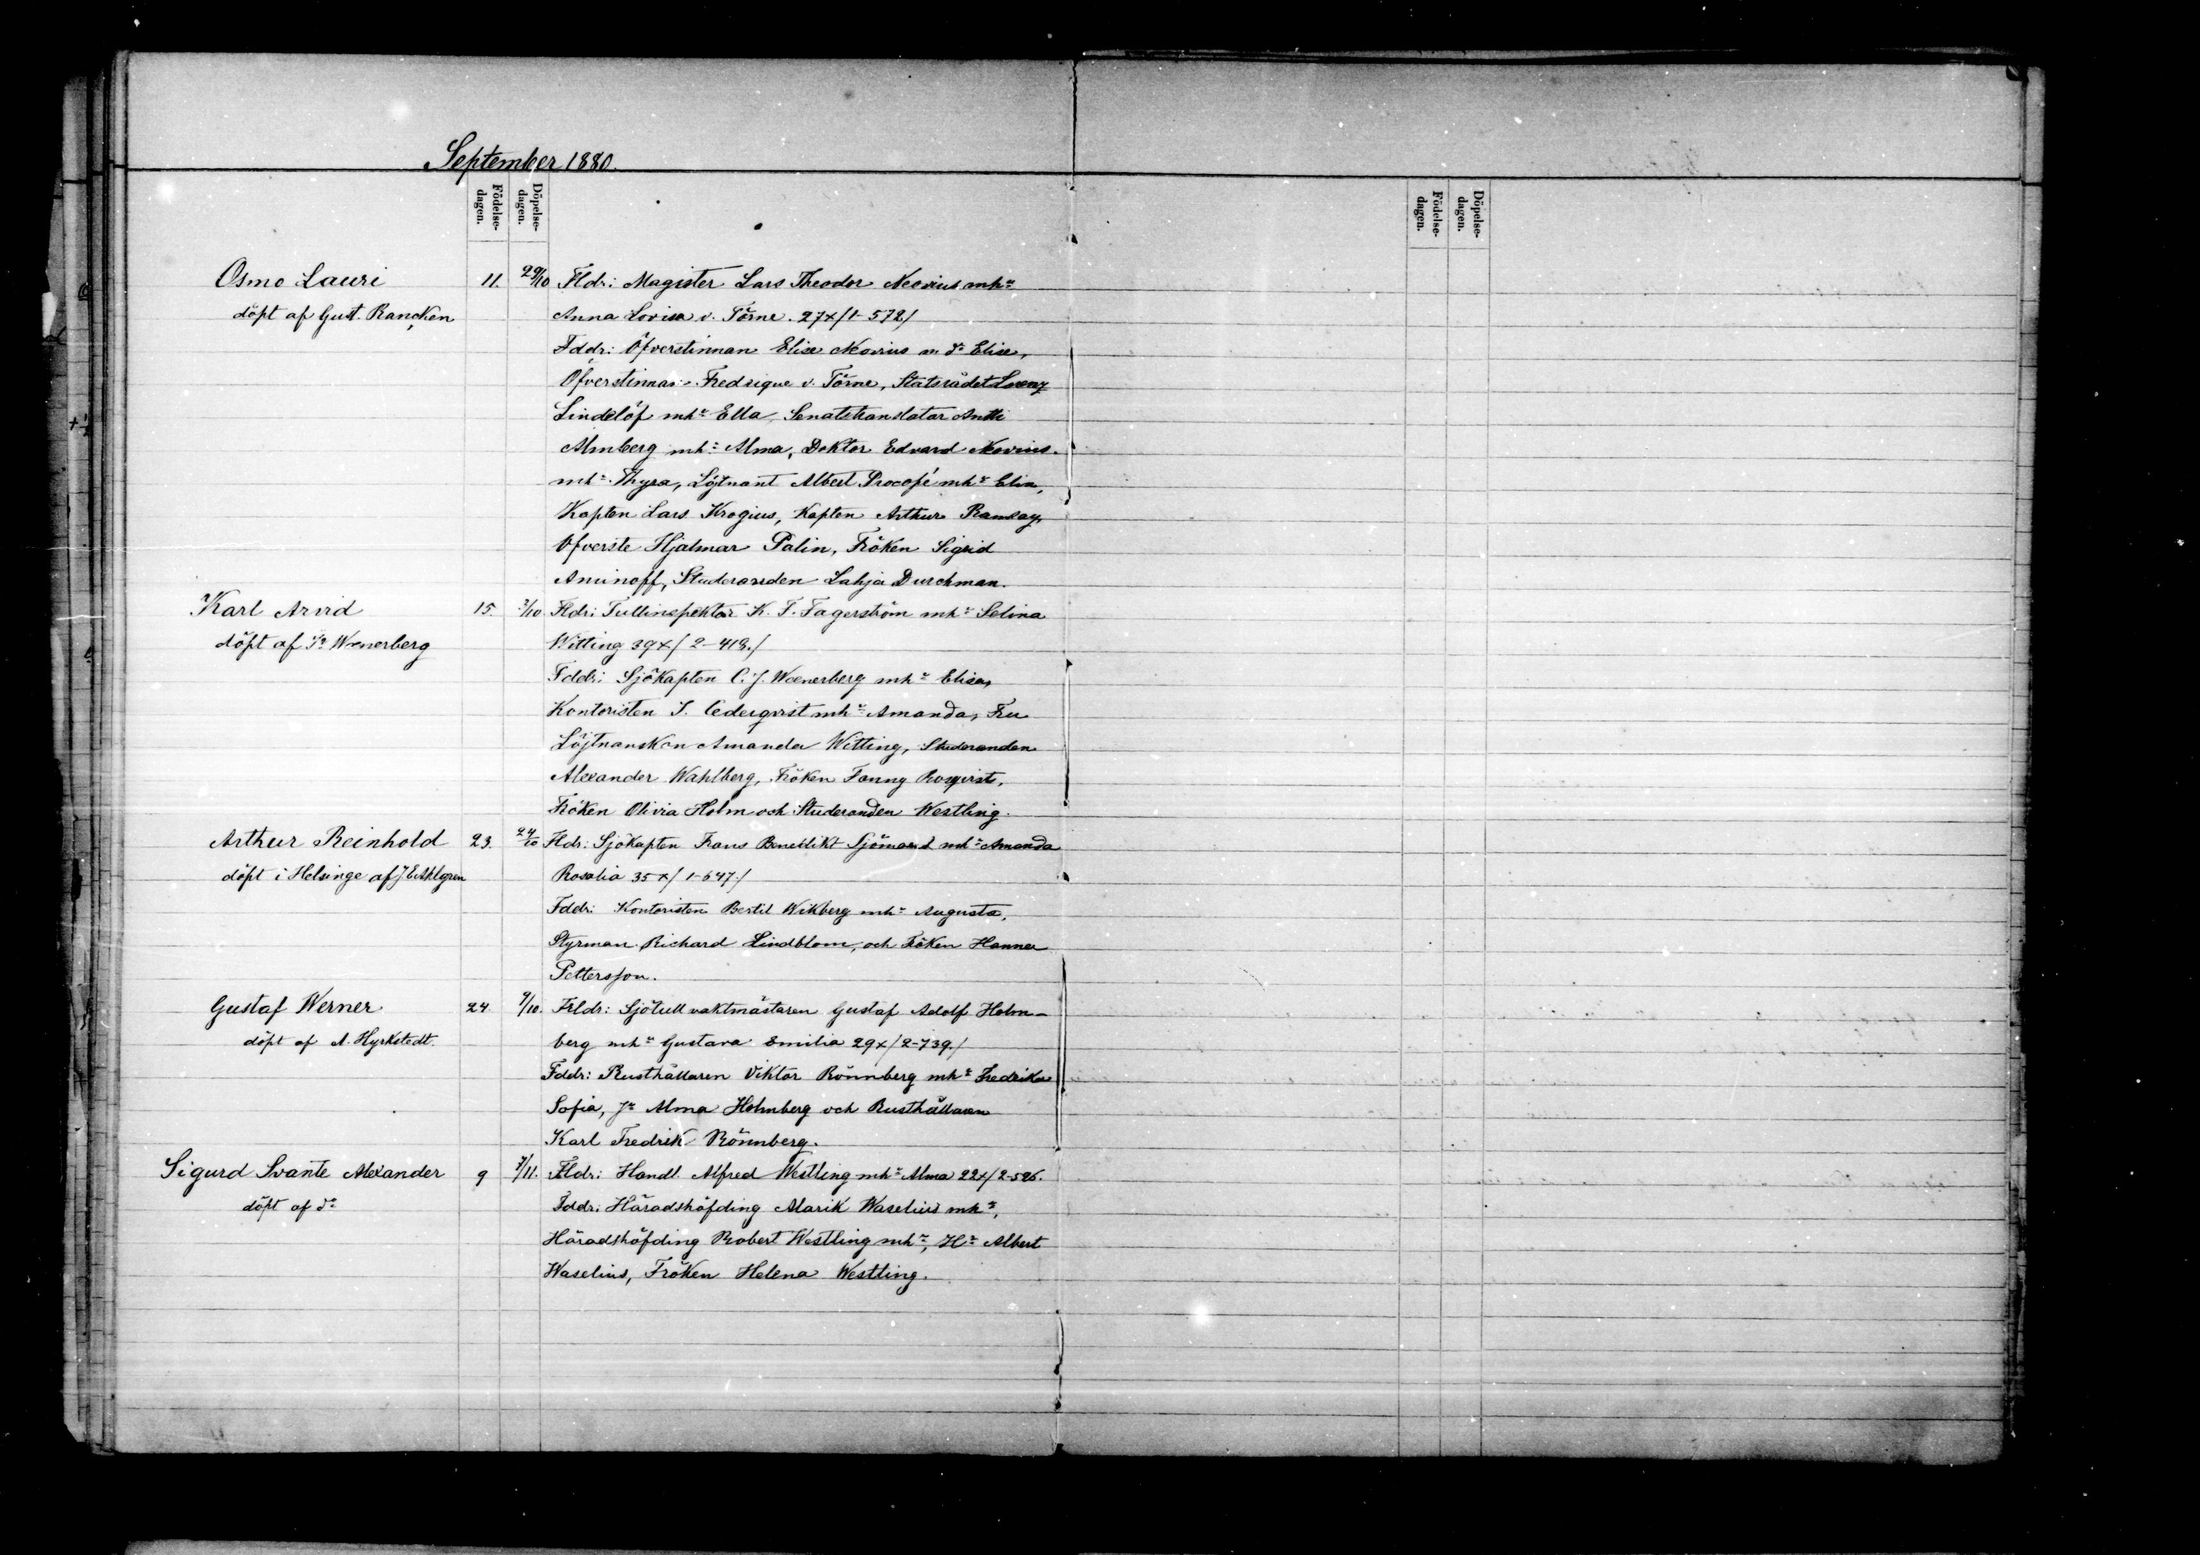 September 1880.
Födelse-dagen.
Döpelse-dagen.
Födelse-dagen.
Döpelse-dagen.
Osmo Lauri 11. 29/10 Fldr: Magister Lars Theodor Neovius mhu
döpt af Gust. Rancken Anna Lovisa v. Törne. 27x/1-572/
Fddr: Öfverstinnan Elise Neovius m dr Elise,
Öfverstinnan Fredrique v. Törne, Statsrådet Lorenz
Lindelöf mhu Ella, Senatstranslator Antti
Almberg mhu Alma, Doktor Edvard Neovius
mhu Thyra, Löjtnant Albert Procopé mhu Elin,
Kapten Lars Krogius, Kapten Arthur Ramsay,
Öfverste Hjalmar Palin, Fröken Sigrid
Aminoff, Studeranden Lahja Durchman.
Karl Arvid 15. 3/10 Fldr: Tullinspektor K. F. Fagerström mhu Selina
döpt af Wænerberg Witting 39x/2-418./
Fddr: Sjökapten C. J. Wænerberg mhu Elise,
Kontoristen J. Cederqvist mhu Amanda, Fru
Löjtnanskan Amanda Witting, Studeranden
Alexander Wahlberg, Fröken Fanny Rosqvist,
Fröken Olivia Holm och Studeranden Westling.
Arthur Reinhold 23. 24/10 Fldr: Sjökapten Frans Benedikt Sjöman mhu Amanda
döpt i Helsinge af J. E. Ahlgren Rosalia 35x/1-647./
Fddr: Kontoristen Bertil Wikberg mhu Augusta,
Styrman Richard Lindblom, och Fröken Hanna
Pettersson.
Gustaf Werner 24. 9/10. Frldr: Sjötullvaktmästaren Gustaf Adolf Holm-
döpt af A. Hyrkstedt. berg mhu Gustava Emilia 29x/2-739./
Fddr: Rusthållaren Viktor Rönnberg mhu Fredrika
Sofia, Jr Alma Holmberg och Rusthållaren
Karl Fredrik Rönnberg.
Sigurd Svante Alexander 9 7/11. Fldr: Handl. Alfred Westling mhu Alma 22x/2-526.
döpt af do Fddr: Häradshöfding Alarik Waselius mhu,
Häradshöfding Robert Westling mhu, Hr Albert
Waselius, Fröken Helena Westling.